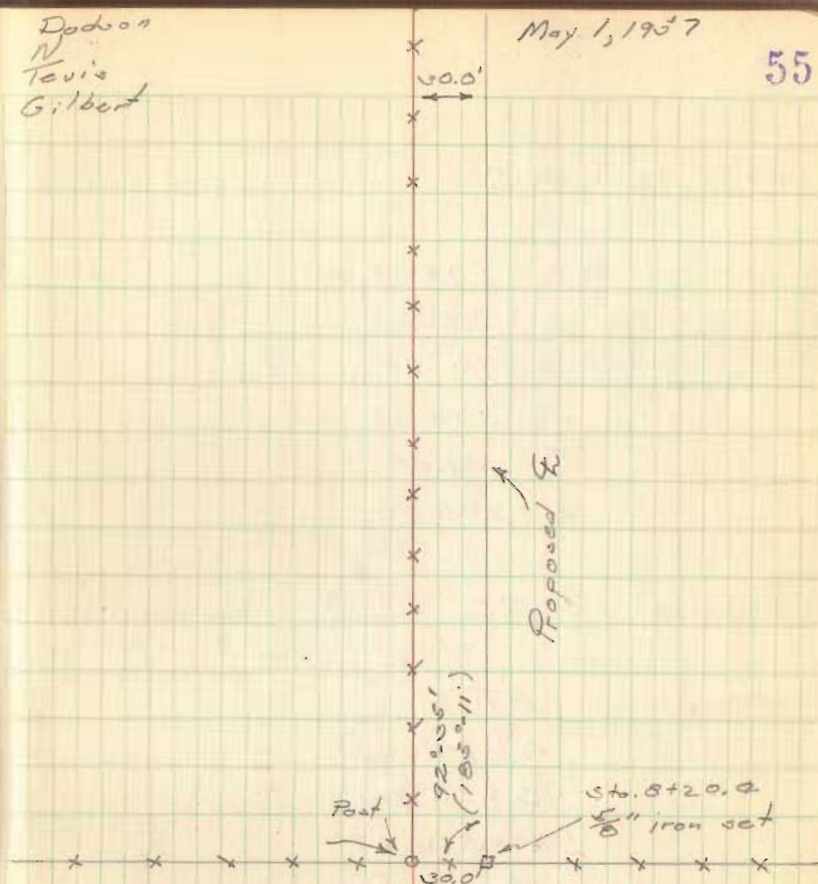 Dodson
N
Tevis
Gilbert
May 1, 1957
55
30.0'
Proposed ℄
92°-35'
(185°-11')
Post
Sta. 8+20.2
5/8" iron set
30.0'